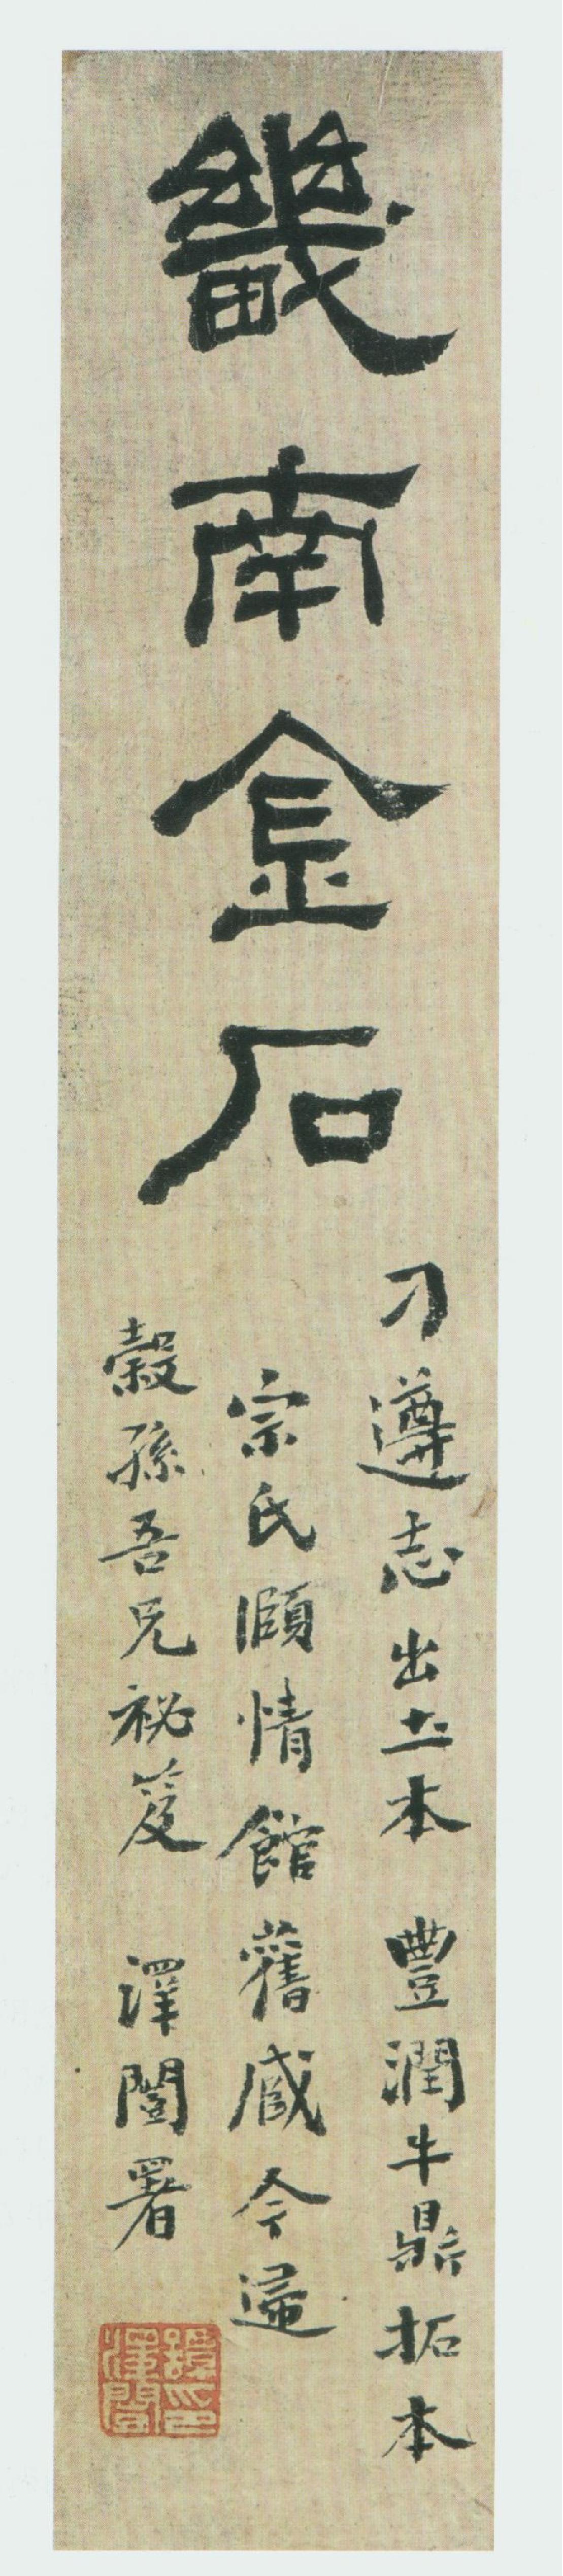 畿南金石
刁遵志出土本 豐潤牛鼎拓本
宗氏頤情館舊臧今歸
穀孫吾兄祕笈 澤闓署
譚澤闓印